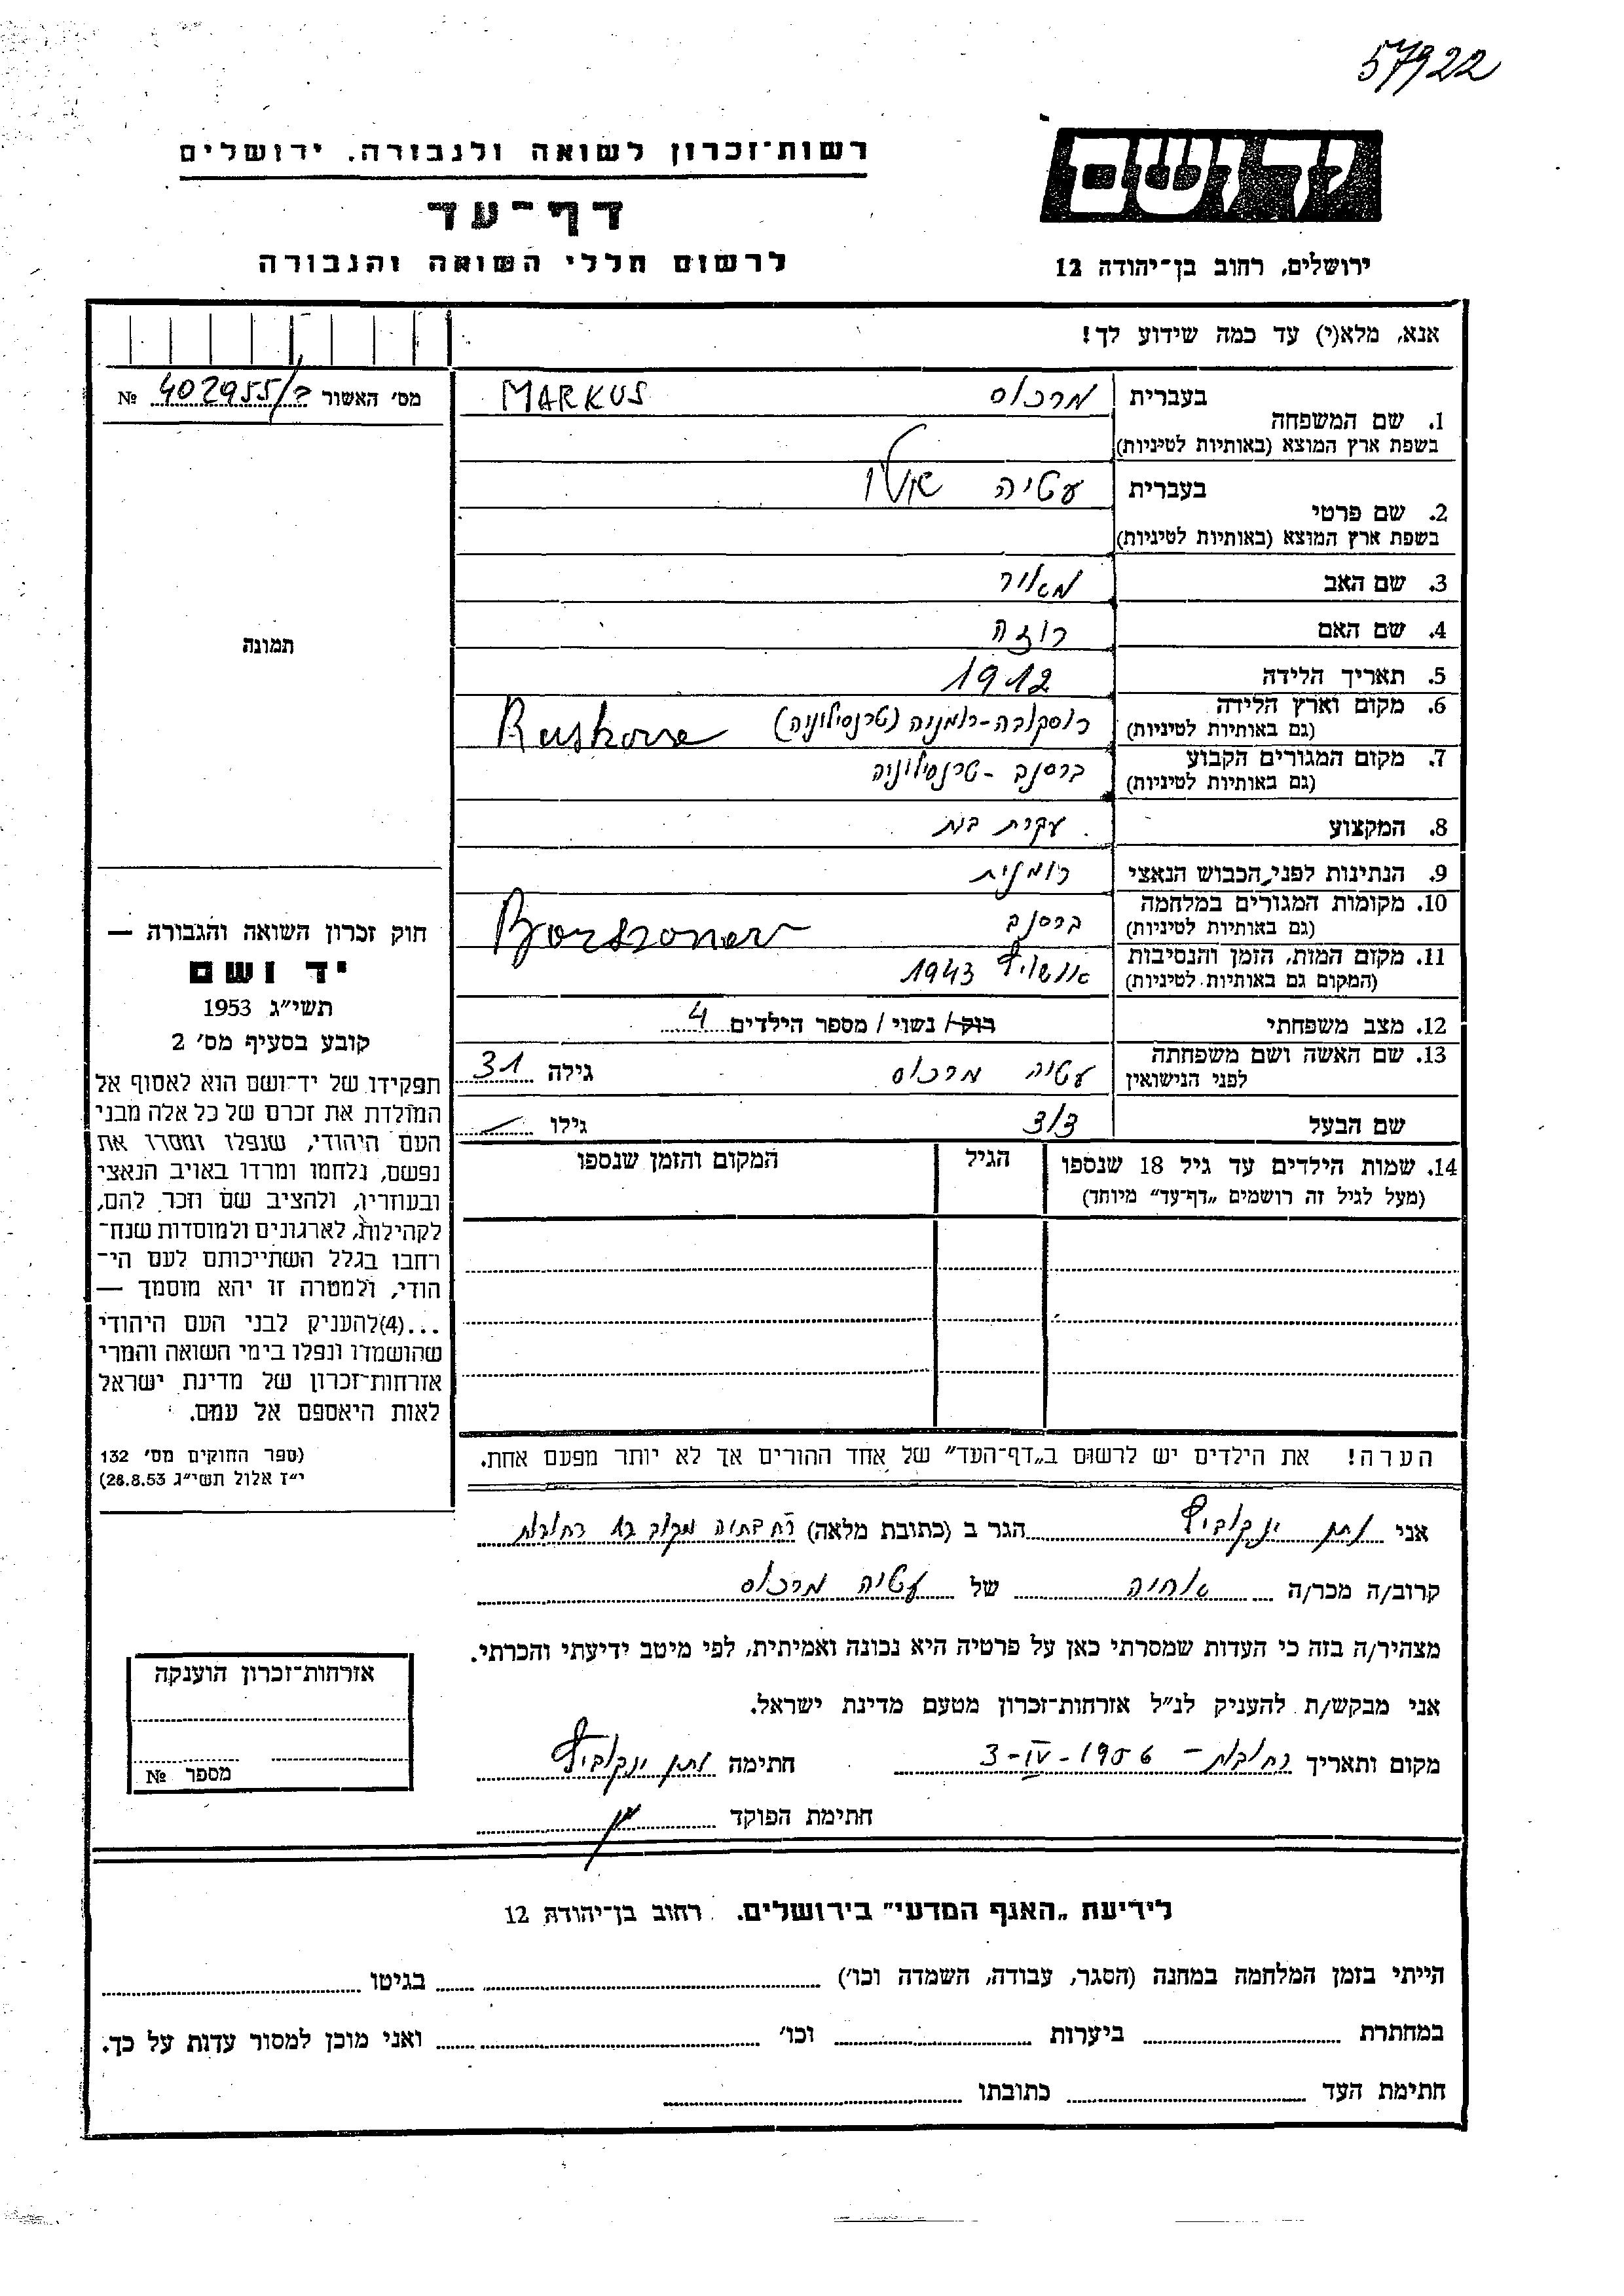 57922
ידושם
רשות־זכרון לשואה ולגבורה. ירושלים
דף־עד
לרשום חללי השואה והגבורה
ירושלים, רחוב בן־יהודה 12
אנא, מלא(י) עד כמה שידוע לך!
מס׳ האשור № 402955/
1. שם המשפחה בעברית מרכוס MARKUS
בשפת ארץ המוצא (באותיות לטיניות)
2. שם פרטי בעברית עטיה
בשפת ארץ המוצא (באותיות לטיניות)
3. שם האב מאיר
4. שם האם רוזה
5. תאריך הלידה 1912
6. מקום וארץ הלידה רוסקובה-רומניה (טרנסילוניה) Ruskova
(גם באותיות לטיניות)
7. מקום המגורים הקבוע ברסנב - טרנסילוניה
(גם באותיות לטיניות)
8. המקצוע עקרת בית
9. הנתינות לפני הכבוש הנאצי רומנית
10. מקומות המגורים במלחמה ברסנב
(גם באותיות לטיניות)
11. מקום המות, הזמן והנסיבות אושויץ 1943
(המקום גם באותיות לטיניות)
12. מצב משפחתי רוק / נשוי / מספר הילדים 4
13. שם האשה ושם משפחתה עטיה מרכוס גילה 31
לפני הנישואין
שם הבעל גילו
14. שמות הילדים עד גיל 18 שנספו הגיל המקום והזמן שנספו
(מעל לגיל זה רושמים „דף־עד״ מיוחד)
הערה! את הילדים יש לרשום ב„דף־העד״ של אחד ההורים אך לא יותר מפעם אחת.
תמונה
חוק זכרון השואה והגבורה —
יד ושם
תשי״ג 1953
קובע בסעיף מס׳ 2
תפקידו של יד־ושם הוא לאסוף אל
המולדת את זכרם של כל אלה מבני
העם היהודי, שנפלו ומסרו את
נפשם, נלחמו ומרדו באויב הנאצי
ובעוזריו, ולהציב שם וזכר להם,
לקהילות, לארגונים ולמוסדות שנח־
רחבו בגלל השתייכותם לעם הי־
הודי, ולמטרה זו יהא מוסמך —
...(4)להעניק לבני העם היהודי
שהושמדו ונפלו בימי השואה והמרי
אזרחות־זכרון של מדינת ישראל
לאות היאספם אל עמם.
(ספר החוקים מס׳ 132
י״ז אלול תשי״ג 28.8.53)
אני נתן יעקוביץ הגר ב (כתובת מלאה) רחובות
קרוב/ה מכר/ה אחיה של עטיה מרכוס
מצהיר/ה בזה כי העדות שמסרתי כאן על פרטיה היא נכונה ואמיתית, לפי מיטב ידיעתי והכרתי.
אני מבקש/ת להעניק לנ״ל אזרחות־זכרון מטעם מדינת ישראל.
מקום ותאריך רחובות - 3-IV-1956 חתימה נתן יעקוביץ
חתימת הפוקד
אזרחות־זכרון הוענקה
מספר №
לידיעת „האגף המדעי״ בירושלים. רחוב בן־יהודה 12
הייתי בזמן המלחמה במחנה (הסגר, עבודה, השמדה וכו׳) בגיטו
במחתרת ביערות וכו׳ ואני מוכן למסור עדות על כך.
חתימת העד כתובתו